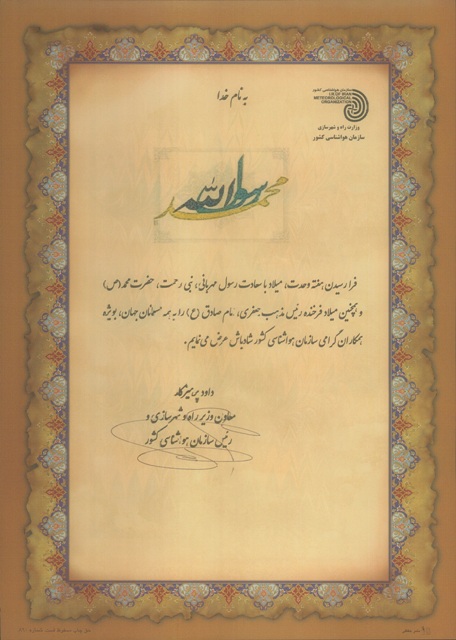 به نام خدا
سازمان هواشناسی کشور
I.R.OF IRAN
METEOROLOGICAL
ORGANIZATION
وزارت راه و شهرسازی
سازمان هواشناسی کشور
محمد رسول الله
فرا رسیدن هفته وحدت، میلاد با سعادت رسول مهربانی، نبی رحمت، حضرت محمد (ص)
و همچنین میلاد فرخنده رئیس مذهب جعفری، امام صادق (ع) را به همه مسلمانان جهان، بویژه
همکاران گرامی سازمان هواشناسی کشور شادباش عرض می نمایم.
داود پرهیزکار
معاون وزیر راه و شهرسازی و
رئیس سازمان هواشناسی کشور